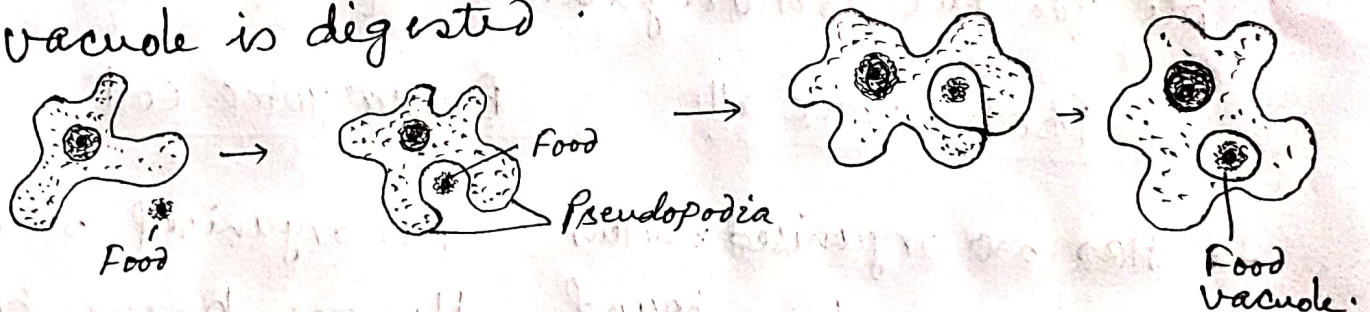 vacuole is digested.
Food
Pseudopodia
Food
Food
vacuole.